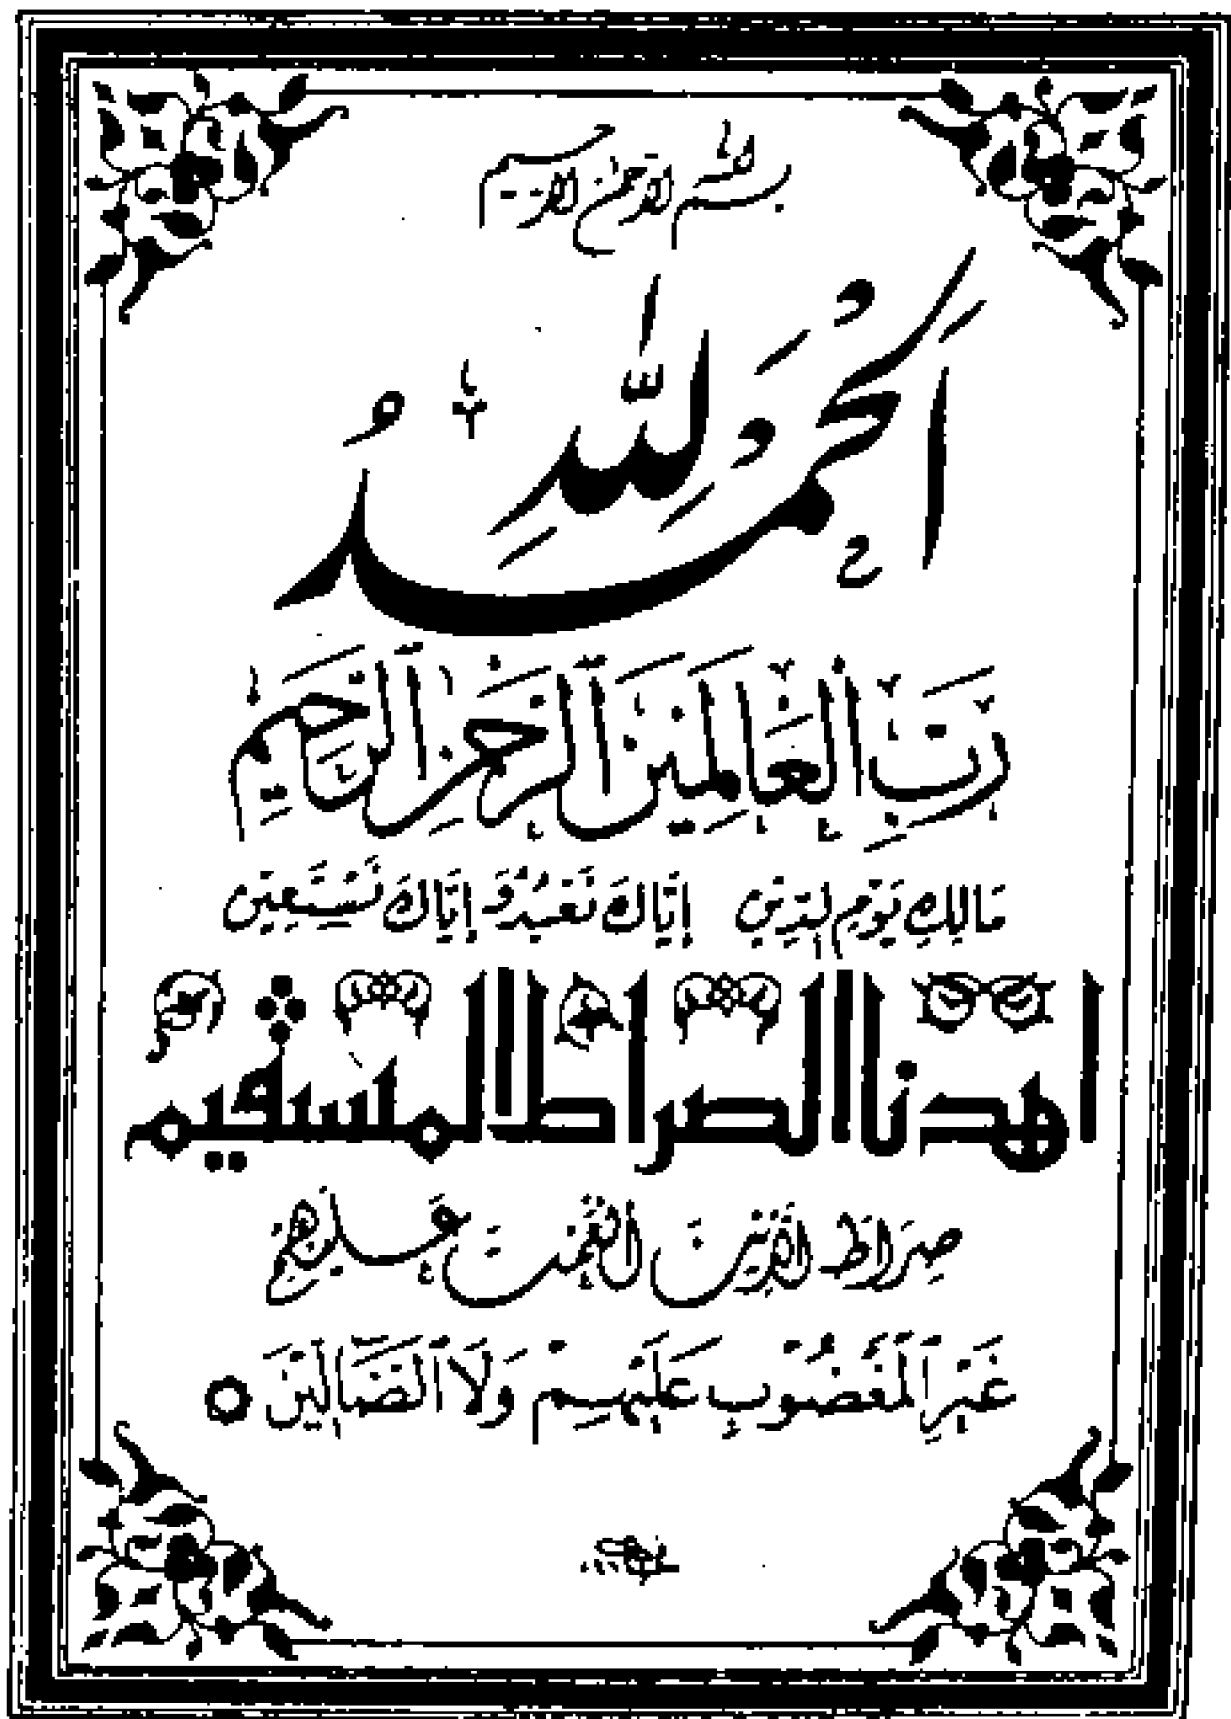 بسم الله الرحمن الرحيم
اَلْحَمْدُ لِلّٰهِ
رَبِّ الْعَالَمِيْنَ الرَّحْمٰنِ الرَّحِيْمِ
مَالِكِ يَوْمِ الدِّيْنِ إِيَّاكَ نَعْبُدُ وَإِيَّاكَ نَسْتَعِيْن
اهدنا الصراط المستقيم
صِرَاطَ الَّذِيْنَ أَنْعَمْتَ عَلَيْهِمْ
غَيْرِ الْمَغْضُوْبِ عَلَيْهِمْ وَلَا الضَّالِّيْنَ